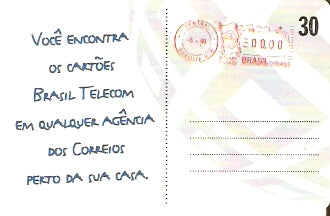 VOCÊ ENCONTRA
OS CARTÕES
BRASIL TELECOM
EM QUALQUER AGÊNCIA
DOS CORREIOS
PERTO DA SUA CASA.
30
=00,00
BRASIL